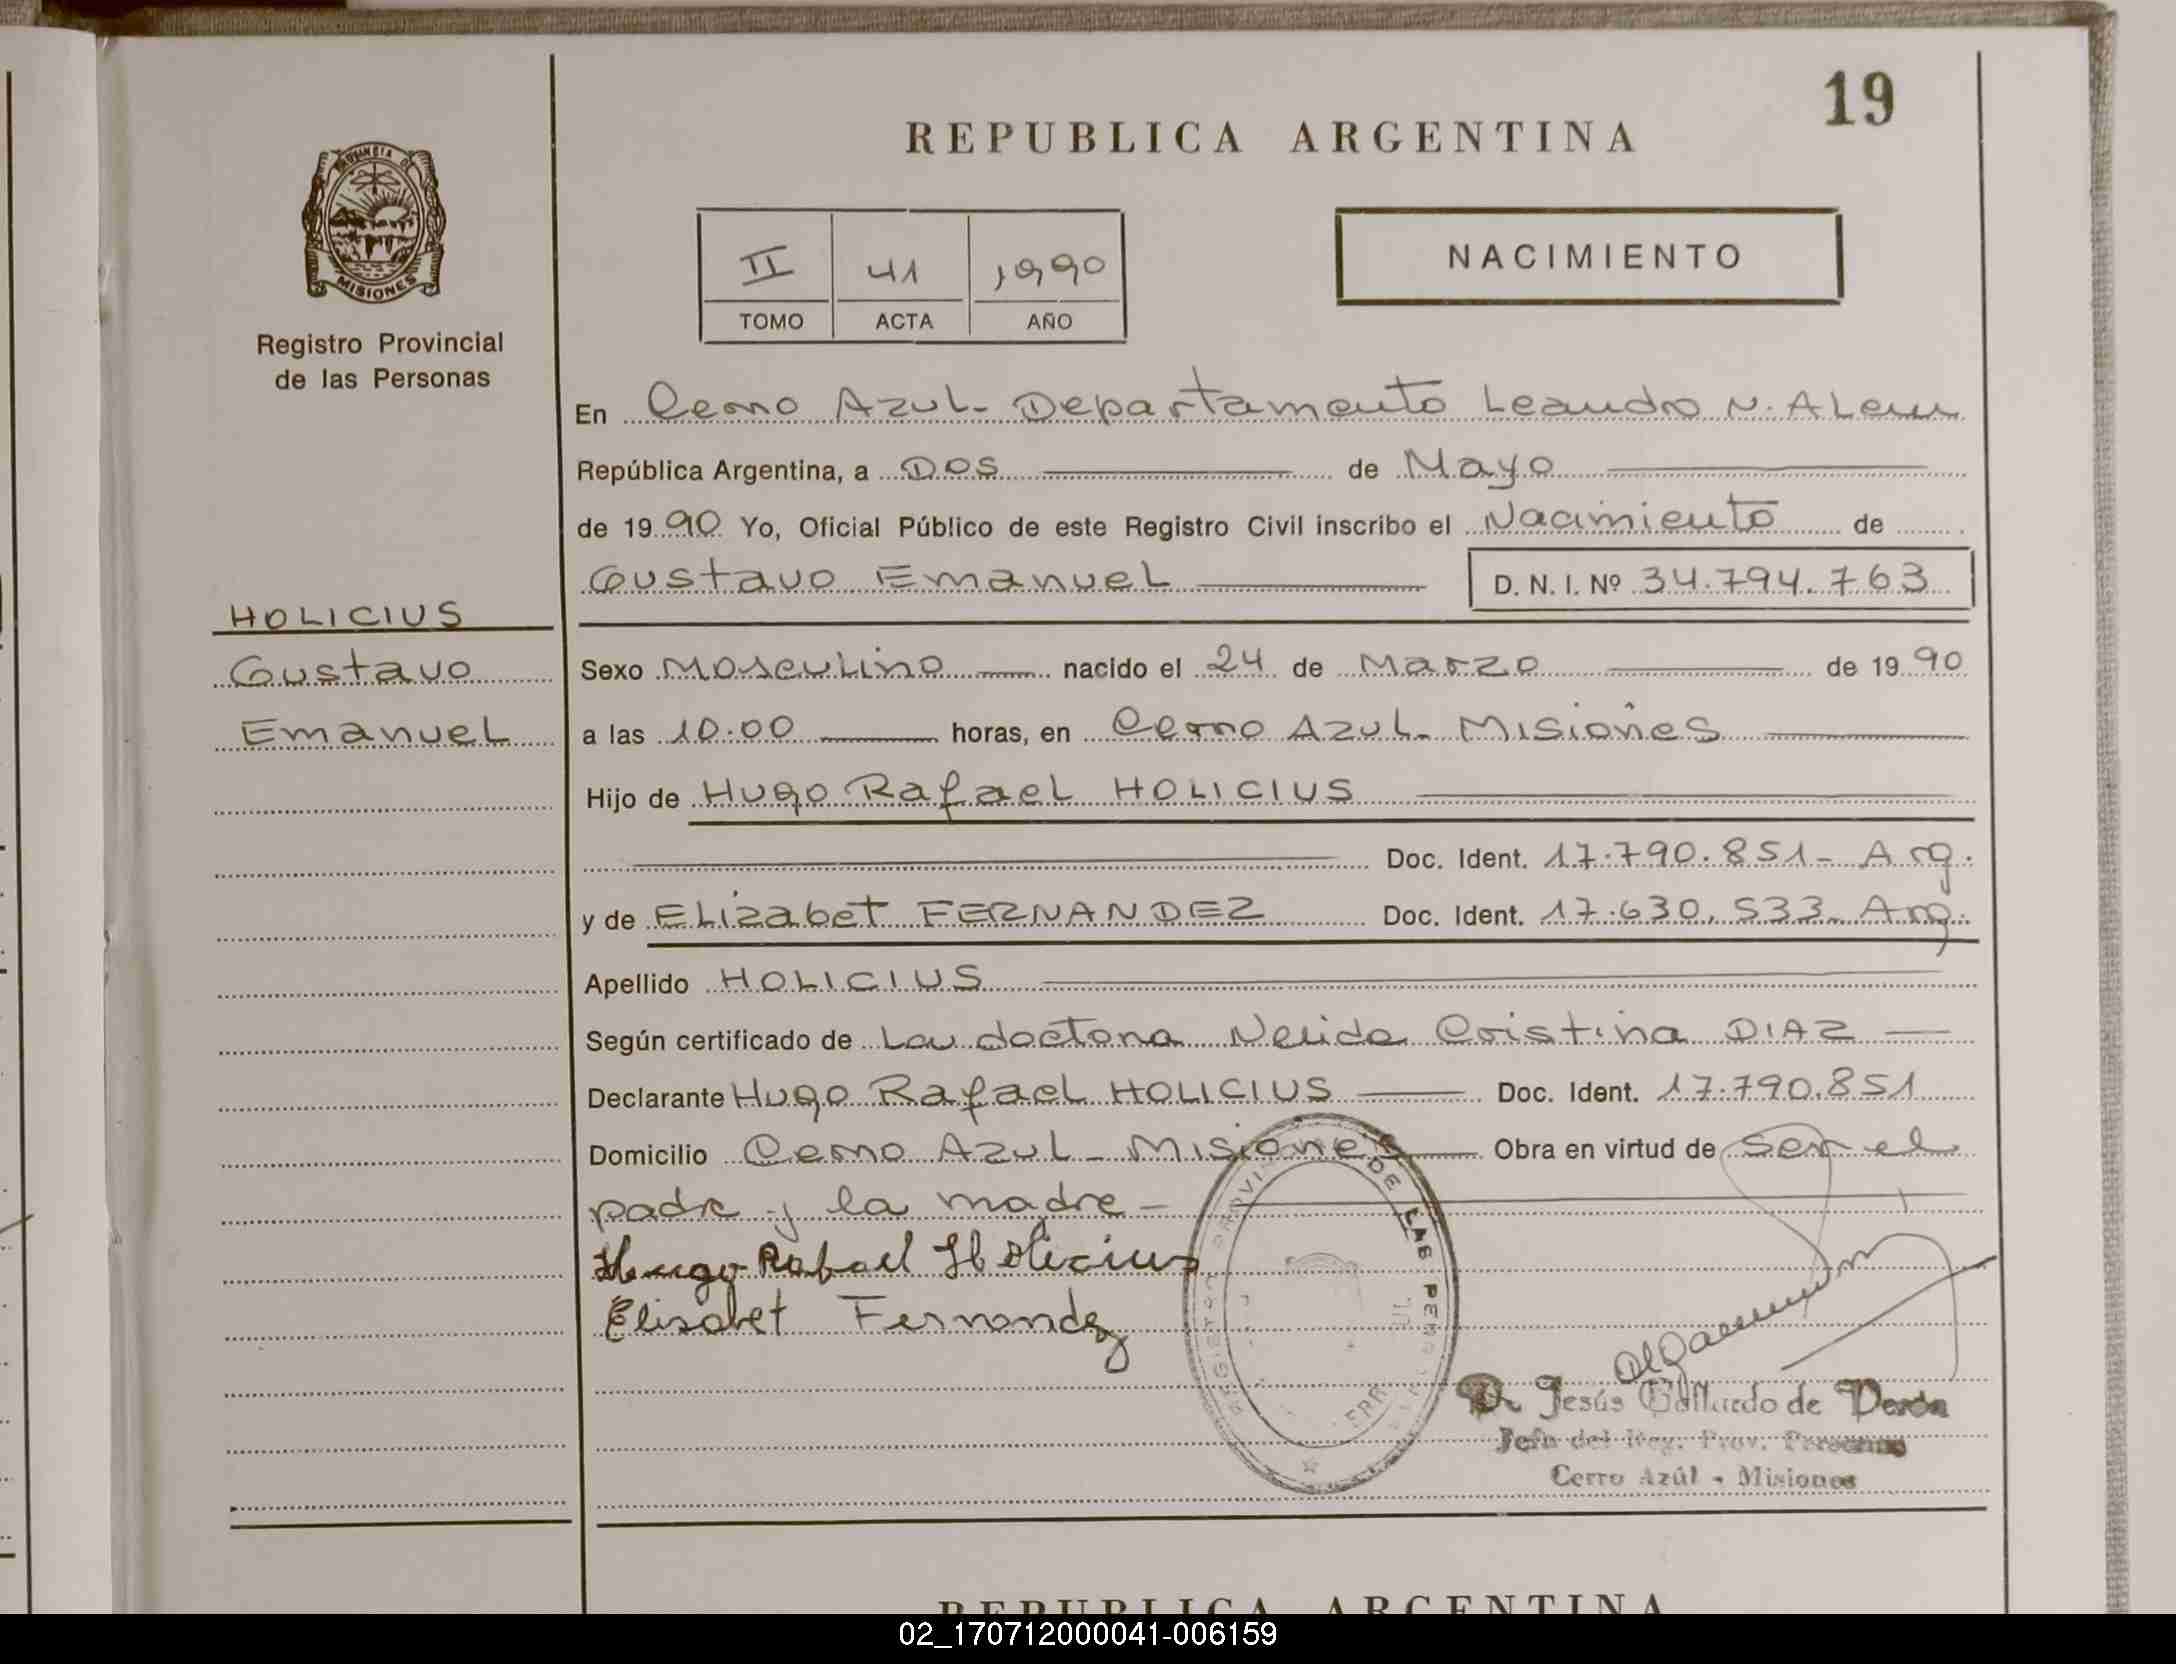 19
REPUBLICA ARGENTINA
PROVINCIA DE
MISIONES
Registro Provincial
de las Personas
II 41 1990
TOMO ACTA AÑO
NACIMIENTO
En Cerro Azul - Departamento Leandro N. Alem
República Argentina, a Dos de Mayo
de 1990 Yo, Oficial Público de este Registro Civil inscribo el Nacimiento de
Gustavo Emanuel D. N. I. Nº 34.794.763
HOLICIUS
Gustavo
Emanuel
Sexo Masculino nacido el 24 de Marzo de 1990
a las 10.00 horas, en Cerro Azul - Misiones
Hijo de Hugo Rafael HOLICIUS
Doc. Ident. 17.790.851 - Arg.
y de Elizabet FERNANDEZ Doc. Ident. 17.630.533 - Arg.
Apellido HOLICIUS
Según certificado de La doctora Nelida Cristina DIAZ
Declarante Hugo Rafael HOLICIUS Doc. Ident. 17.790.851
Domicilio Cerro Azul - Misiones Obra en virtud de ser el
padre y la madre -
Hugo Rafael Holicius
Elisabet Fernandez
DE LAS PERS
Jesús Gallardo de Perón
Jefe del Reg. Prov. Personas
Cerro Azúl - Misiones
REPUBLICA ARGENTINA
02_170712000041-006159